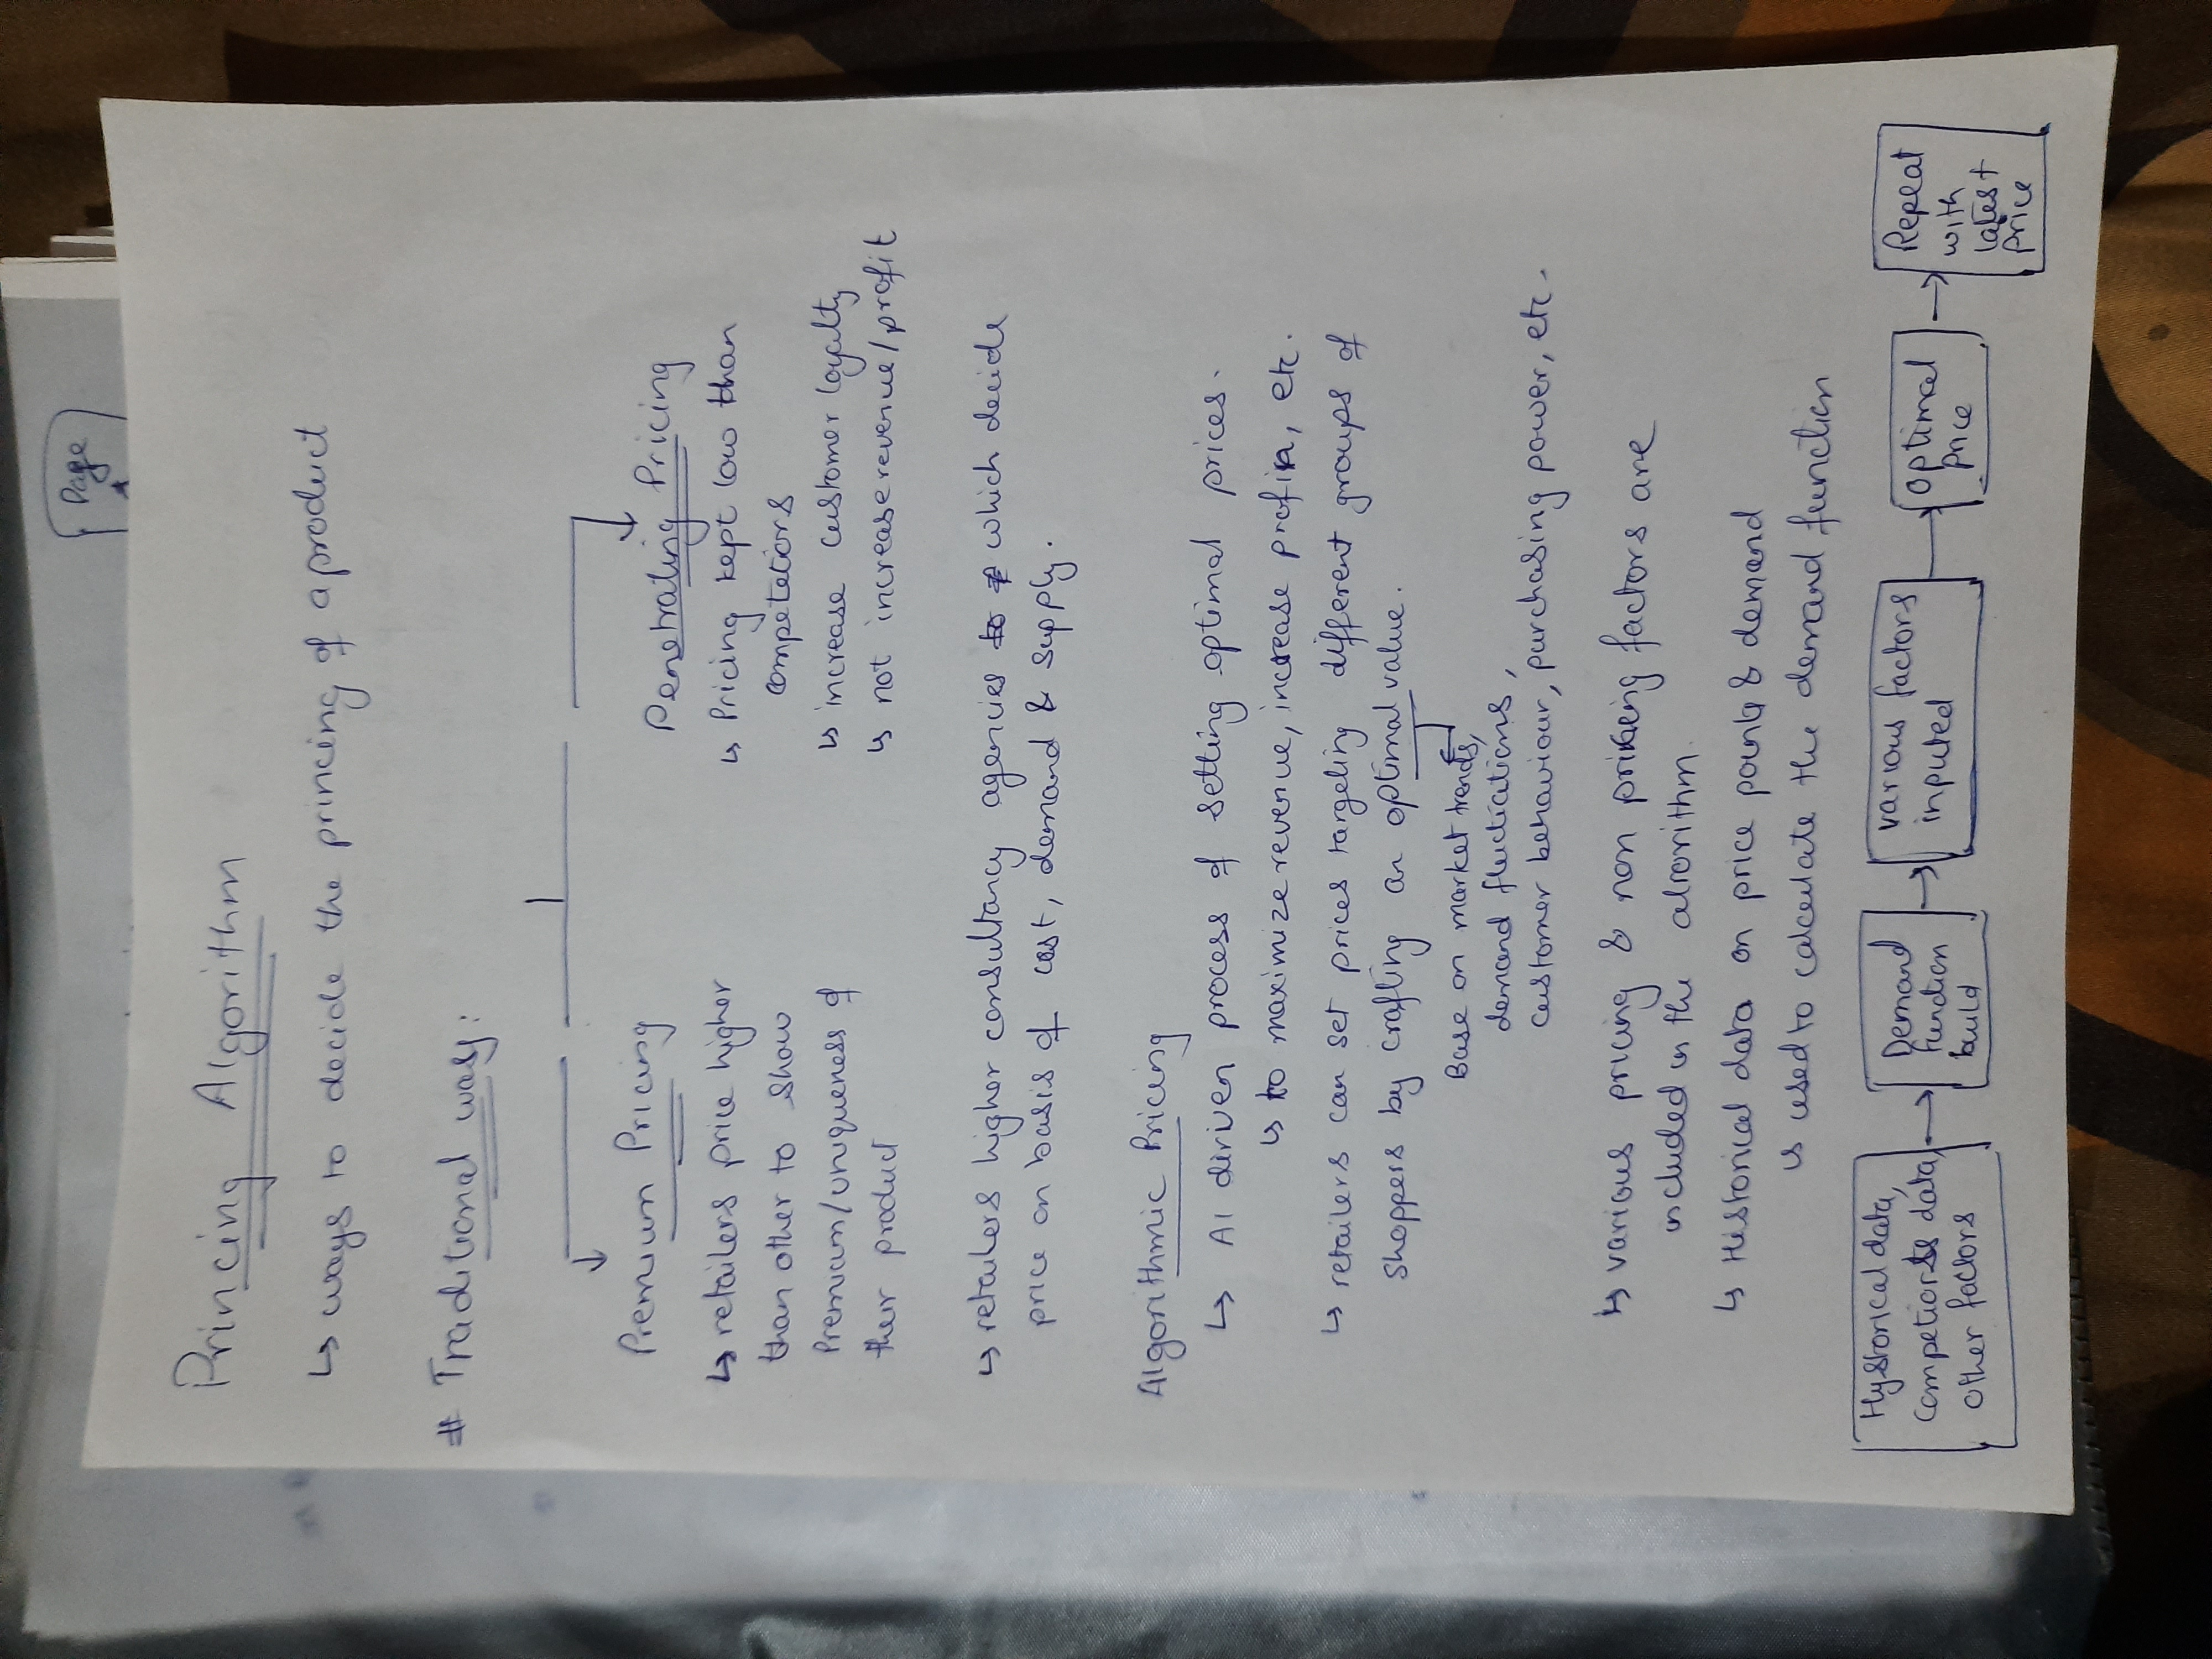 Page
Princing Algorithm
↳ ways to decide the princing of a product
# Traditional way:
Premium Pricing
↳ retailers price higher
than other to show
Premium/uniqueness of
their product
Penetrating Pricing
↳ Pricing kept low than
competetiors
↳ increase customer loyalty
↳ not increase revenue/profit
↳ retailers higher consultancy agencies which decide
price on basis of cost, demand & supply.
Algorithmic Pricing
↳ AI diriven process of setting optimal prices.
↳ to maximize revenue, increase profin, etc.
↳ retailers can set prices targeting different groups of
shoppers by crafting an optimal value.
Base on market trends,
demand fluctiations,
customer behaviour, purchasing power, etc.
↳ various pricing & non pricing factors are
included in the alrorithm.
↳ Historical data on price points & demand
is used to calculate the demand function
Hystorical data,
competiorsts data,
other factors
Demand
function
build
various factors
inputed
optimal
price
Repeat
with
latest
price